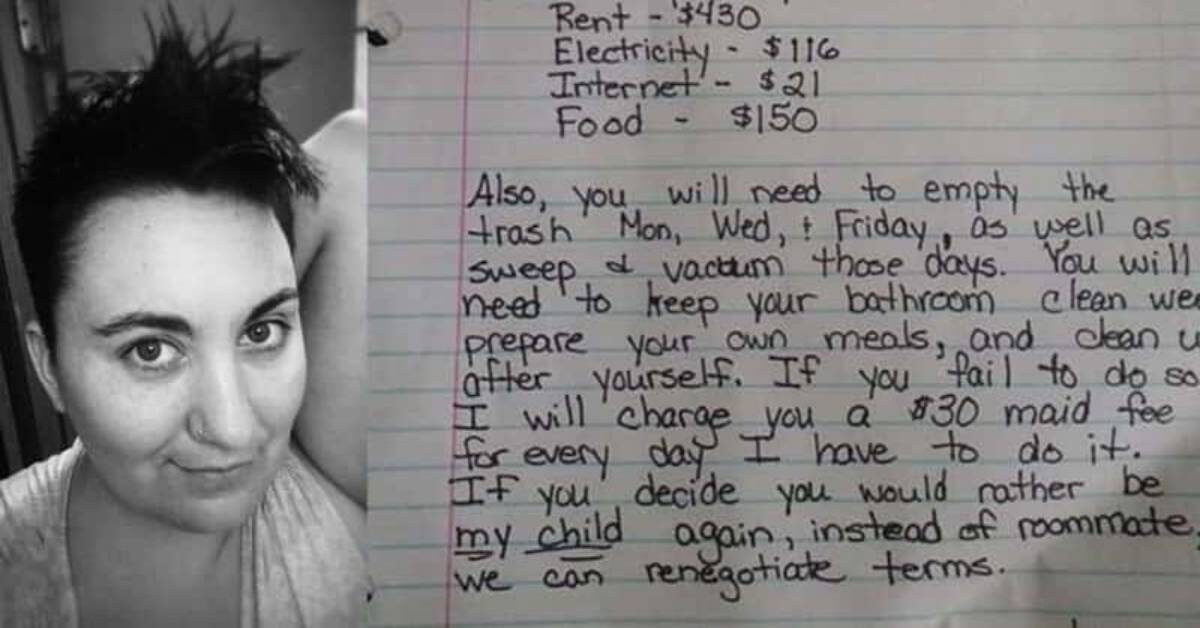 Rent - $430
Electricity - $116
Internet - $21
Food - $150
Also, you will need to empty the
trash Mon, Wed, + Friday, as well as
sweep & vacuum those days. You will
need to keep your bathroom clean we
prepare your own meals, and clean u
after yourself. If you fail to do so
I will charge you a $30 maid fee
for every day I have to do it.
If you decide you would rather be
my child again, instead of roommate,
we can renegotiate terms.